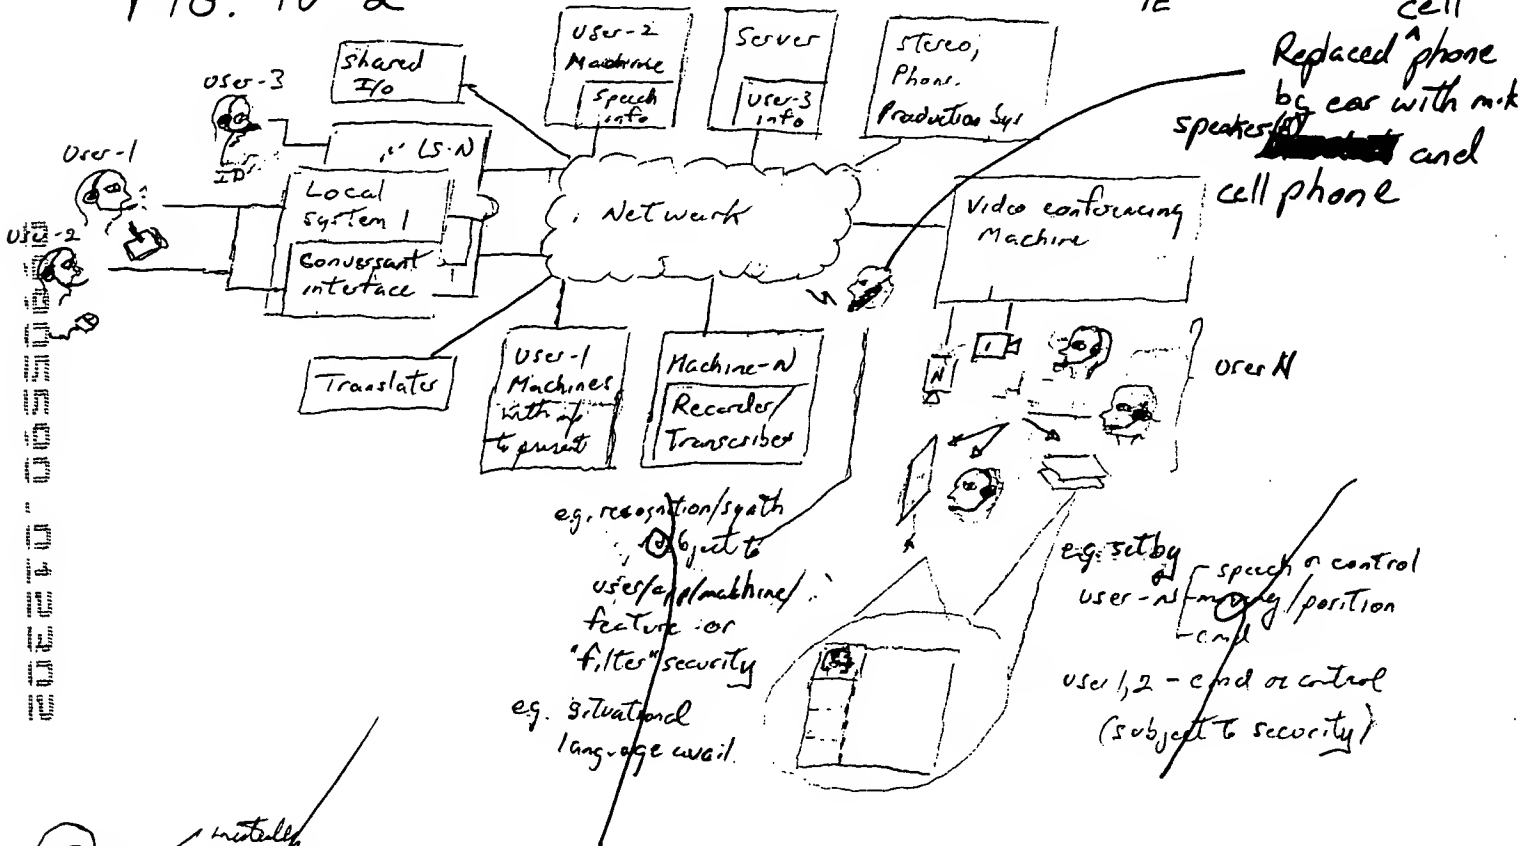 FIG. 10-2
IE
cell
Replaced ^ phone
by ear with mik
speaker(s)
and
cell phone
User-3
Shared
I/o
User-2
Machine
Speech
info
Server
User-3
info
Stereo,
Phone.
Production Sys
User-1
ID
LS-N
Local
System 1
Conversant
interface
User-2
Network
Video conferencing
Machine
Translator
User-1
Machines
with info
to present
Machine-N
Recorder/
Transcriber
N
1
User N
e.g. recognition/synth
subject to
user/app/machine/
feature or
"filter" security
e.g. situational
language avail.
e.g. set by
User-N
speech or control
moving/position
cmd
user 1,2 - cmd or control
(subject to security)